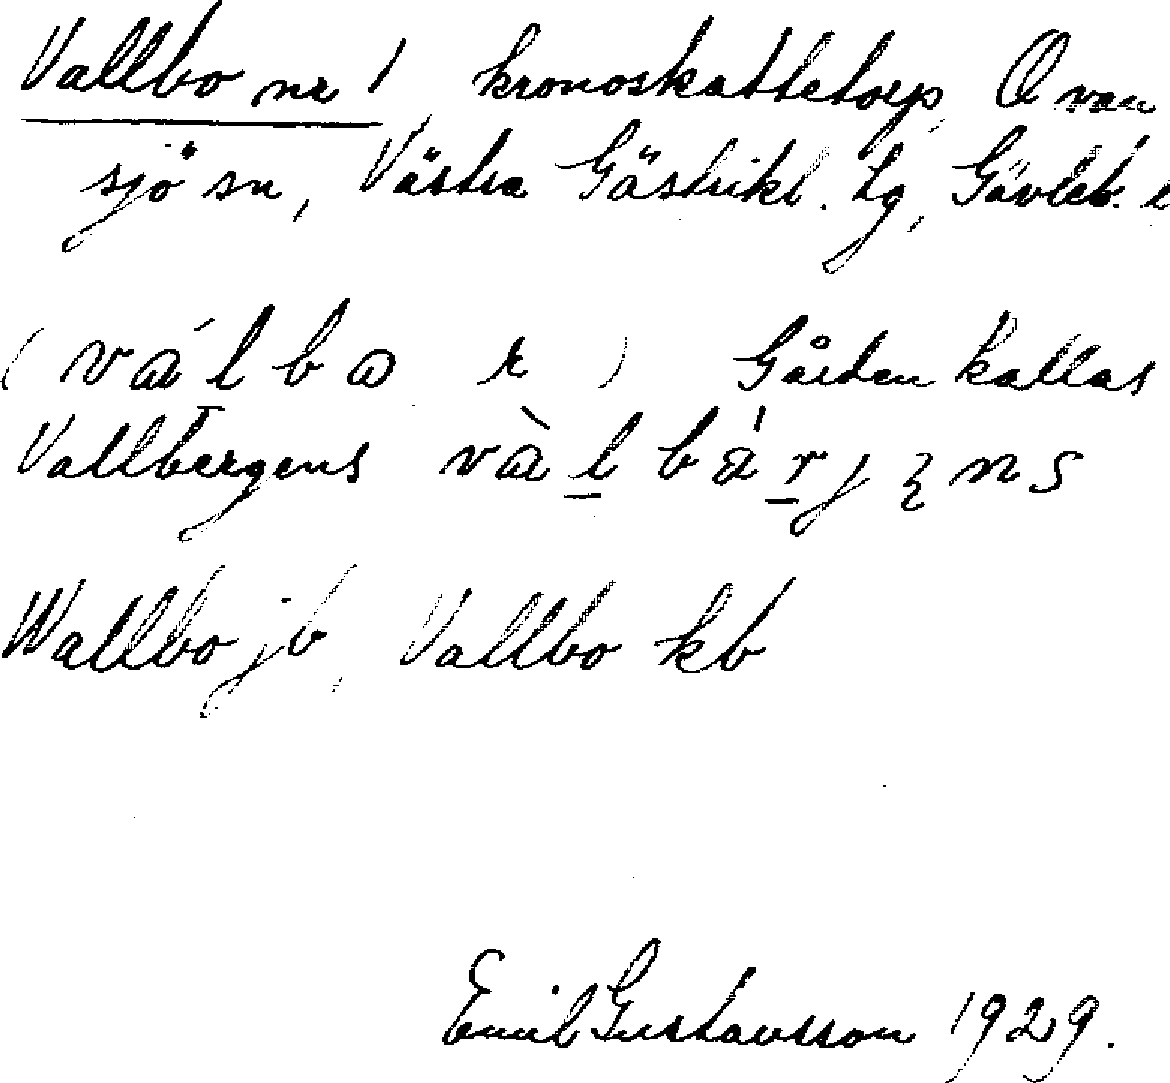 Vallbo nr 1, kronoskattetorp, Ovan
sjö sn, Västra Gästrikl. tg, Gävleb. l
(válbo r) Gården kallas
Vallbergens
Wallbo jb, Vallbo kb
Emil Gustavsson 1929.